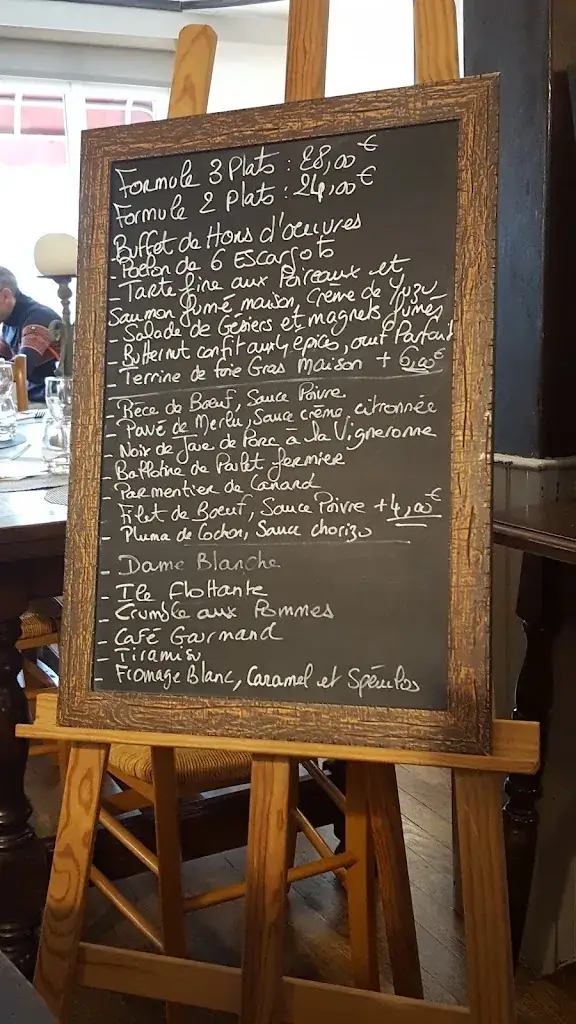 Formule 3 Plats : 28,00€
Formule 2 Plats : 24,00€
- Buffet de Hors d'oeuvres
- Poelon de 6 Escargots
- Tarte fine aux Poireaux et
Saumon fumé maison, Crème de Yuzu
- Salade de Gésiers et magrets fumés
- Butternut confit aux 4 épices, œuf Parfait
- Terrine de foie Gras Maison + 6,00€
- Pièce de Bœuf, Sauce Poivre
- Pavé de Merlu, Sauce crème, citronnée
- Noix de Joue de Porc à la Vigneronne
- Ballotine de Poulet fermier
- Parmentier de Canard
- Filet de Boeuf, Sauce Poivre + 4,00€
- Pluma de Cochon, Sauce chorizo
- Dame Blanche
- Ile Flottante
- Crumble aux Pommes
- Café Gourmand
- Tiramisu
- Fromage Blanc, Caramel et Spéculos